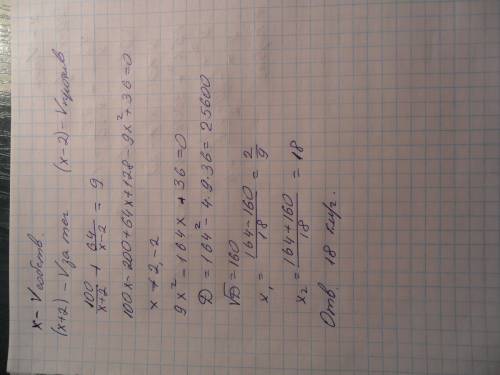 x – Vсобств.
(x+2) – Vза теч (x–2) – Vпротив
100/(x+2) + 64/(x–2) = 9
100x–200+64x+128–9x²+36=0
x ≠ 2, –2
9x²–164x+36=0
D=164²–4·9·36=25600
√D=160
x₁=(164–160)/18=2/9
x₂=(164+160)/18=18
Отв. 18 км/ч.